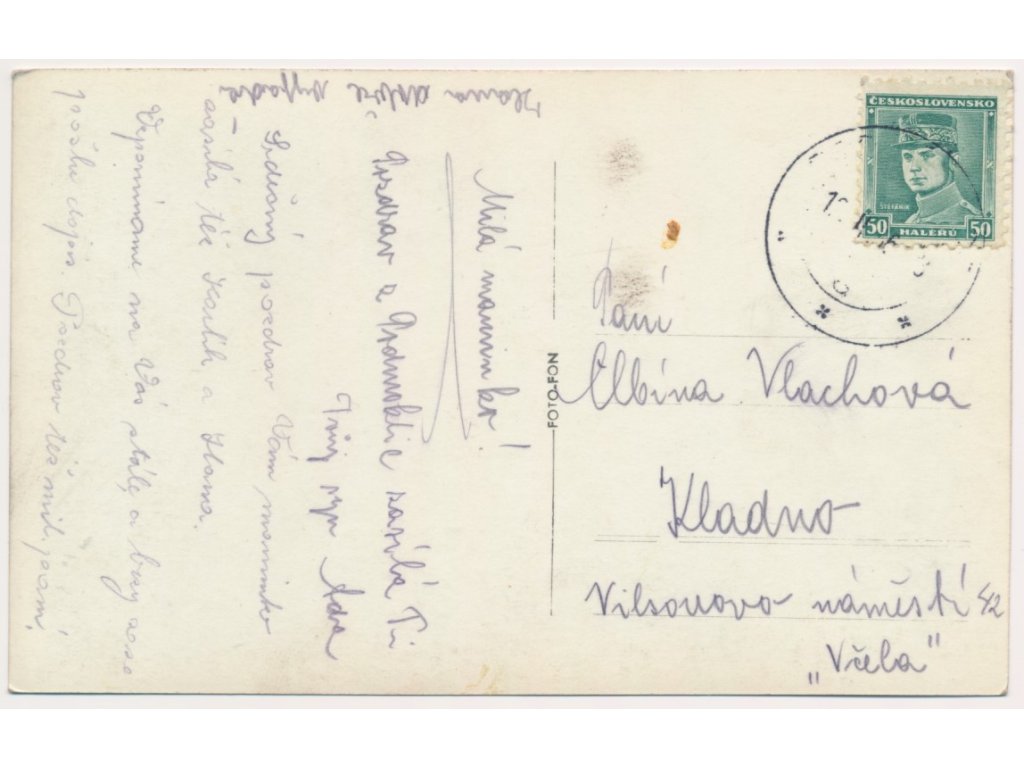 Milá maminko!
Pozdrav a zasílá Ti
Tvůj syn Ada
Srdečný pozdrav Vám maminko
zasílá též Kadlik a Hana.
Vzpomínáme na Vás stále a brzy zase
pošlu dojps. Pozdrav též mil. paní
Hana dobře vypadá
FOTO-FON
ČESKOSLOVENSKO
ŠTEFÁNIK
50 HALÉŘŮ 50
Paní
Elbína Vlachová
Kladno
Vilsonovo náměstí 42
„Včela"